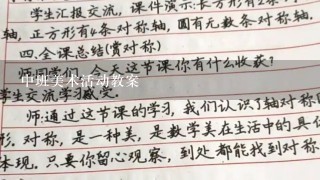 学生汇报交流,课件演示:长方形有2条
轴,正方形有4条对称轴,圆有无数条对称轴.
四.全课总结(赏对称)
今天这节课你有什么收获?
中班美术活动教案
学生交流学习
师:通过这节课的学习,我们认识了轴对称
形.对称,是一种美,是数学美在生活中的具
体现.只要你留心观察,到处都能找到对称